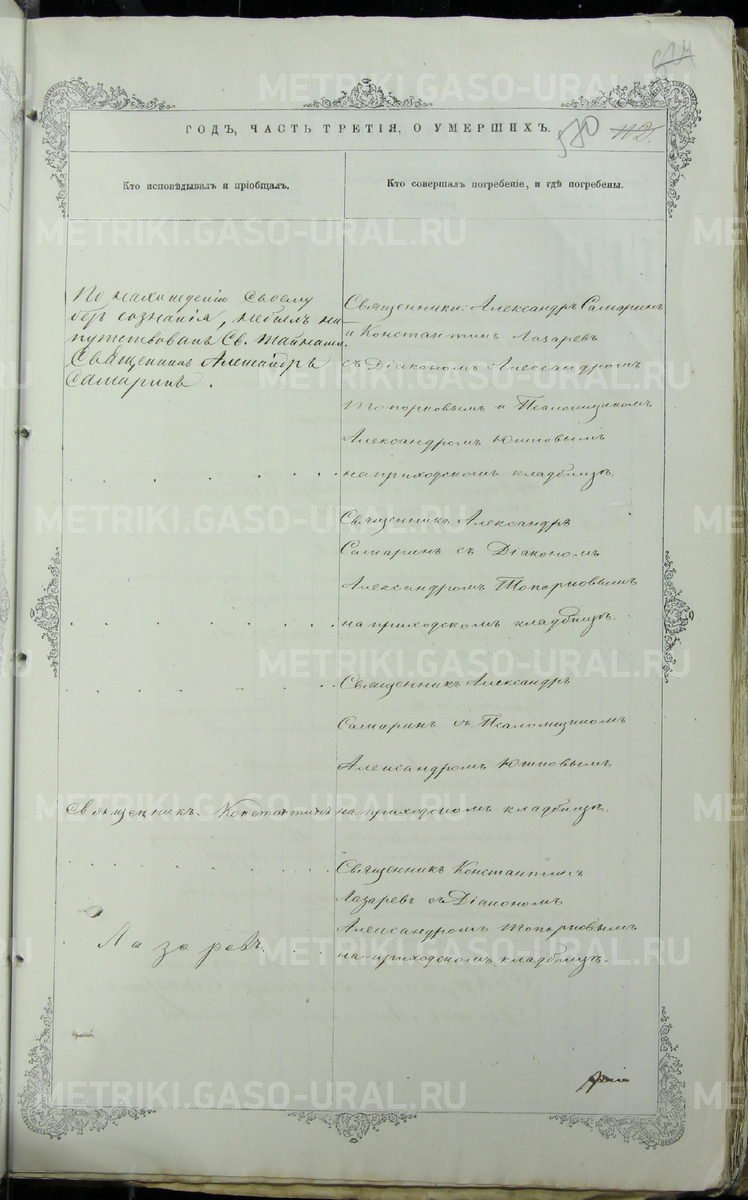 ГОДЪ, ЧАСТЬ ТРЕТІЯ, О УМЕРШИХЪ.
580
112.
Кто исповѣдывалъ и пріобщалъ.
Кто совершалъ погребеніе, и гдѣ погребены.
По нахожденію своему
безъ сознанія, небылъ на
путствованъ Св. Тайнами.
Священникъ Александръ
Самаринъ.
Священники: Александръ Самаринъ
и Константинъ Лазаревъ
съ Діакономъ Александромъ
Топорковымъ и Псаломщикомъ
Александромъ Юшковымъ
на приходскомъ кладбищѣ.
Священникъ Александръ
Самаринъ съ Діакономъ
Александромъ Топорковымъ
на приходскомъ кладбищѣ.
Священникъ Александръ
Самаринъ съ Псаломщикомъ
Александромъ Юшковымъ
на приходскомъ кладбищѣ.
Священникъ Константинъ
Лазаревъ.
Священникъ Константинъ
Лазаревъ съ Діакономъ
Александромъ Топорковымъ
на приходскомъ кладбищѣ.
METRIKI.GASO-URAL.RU